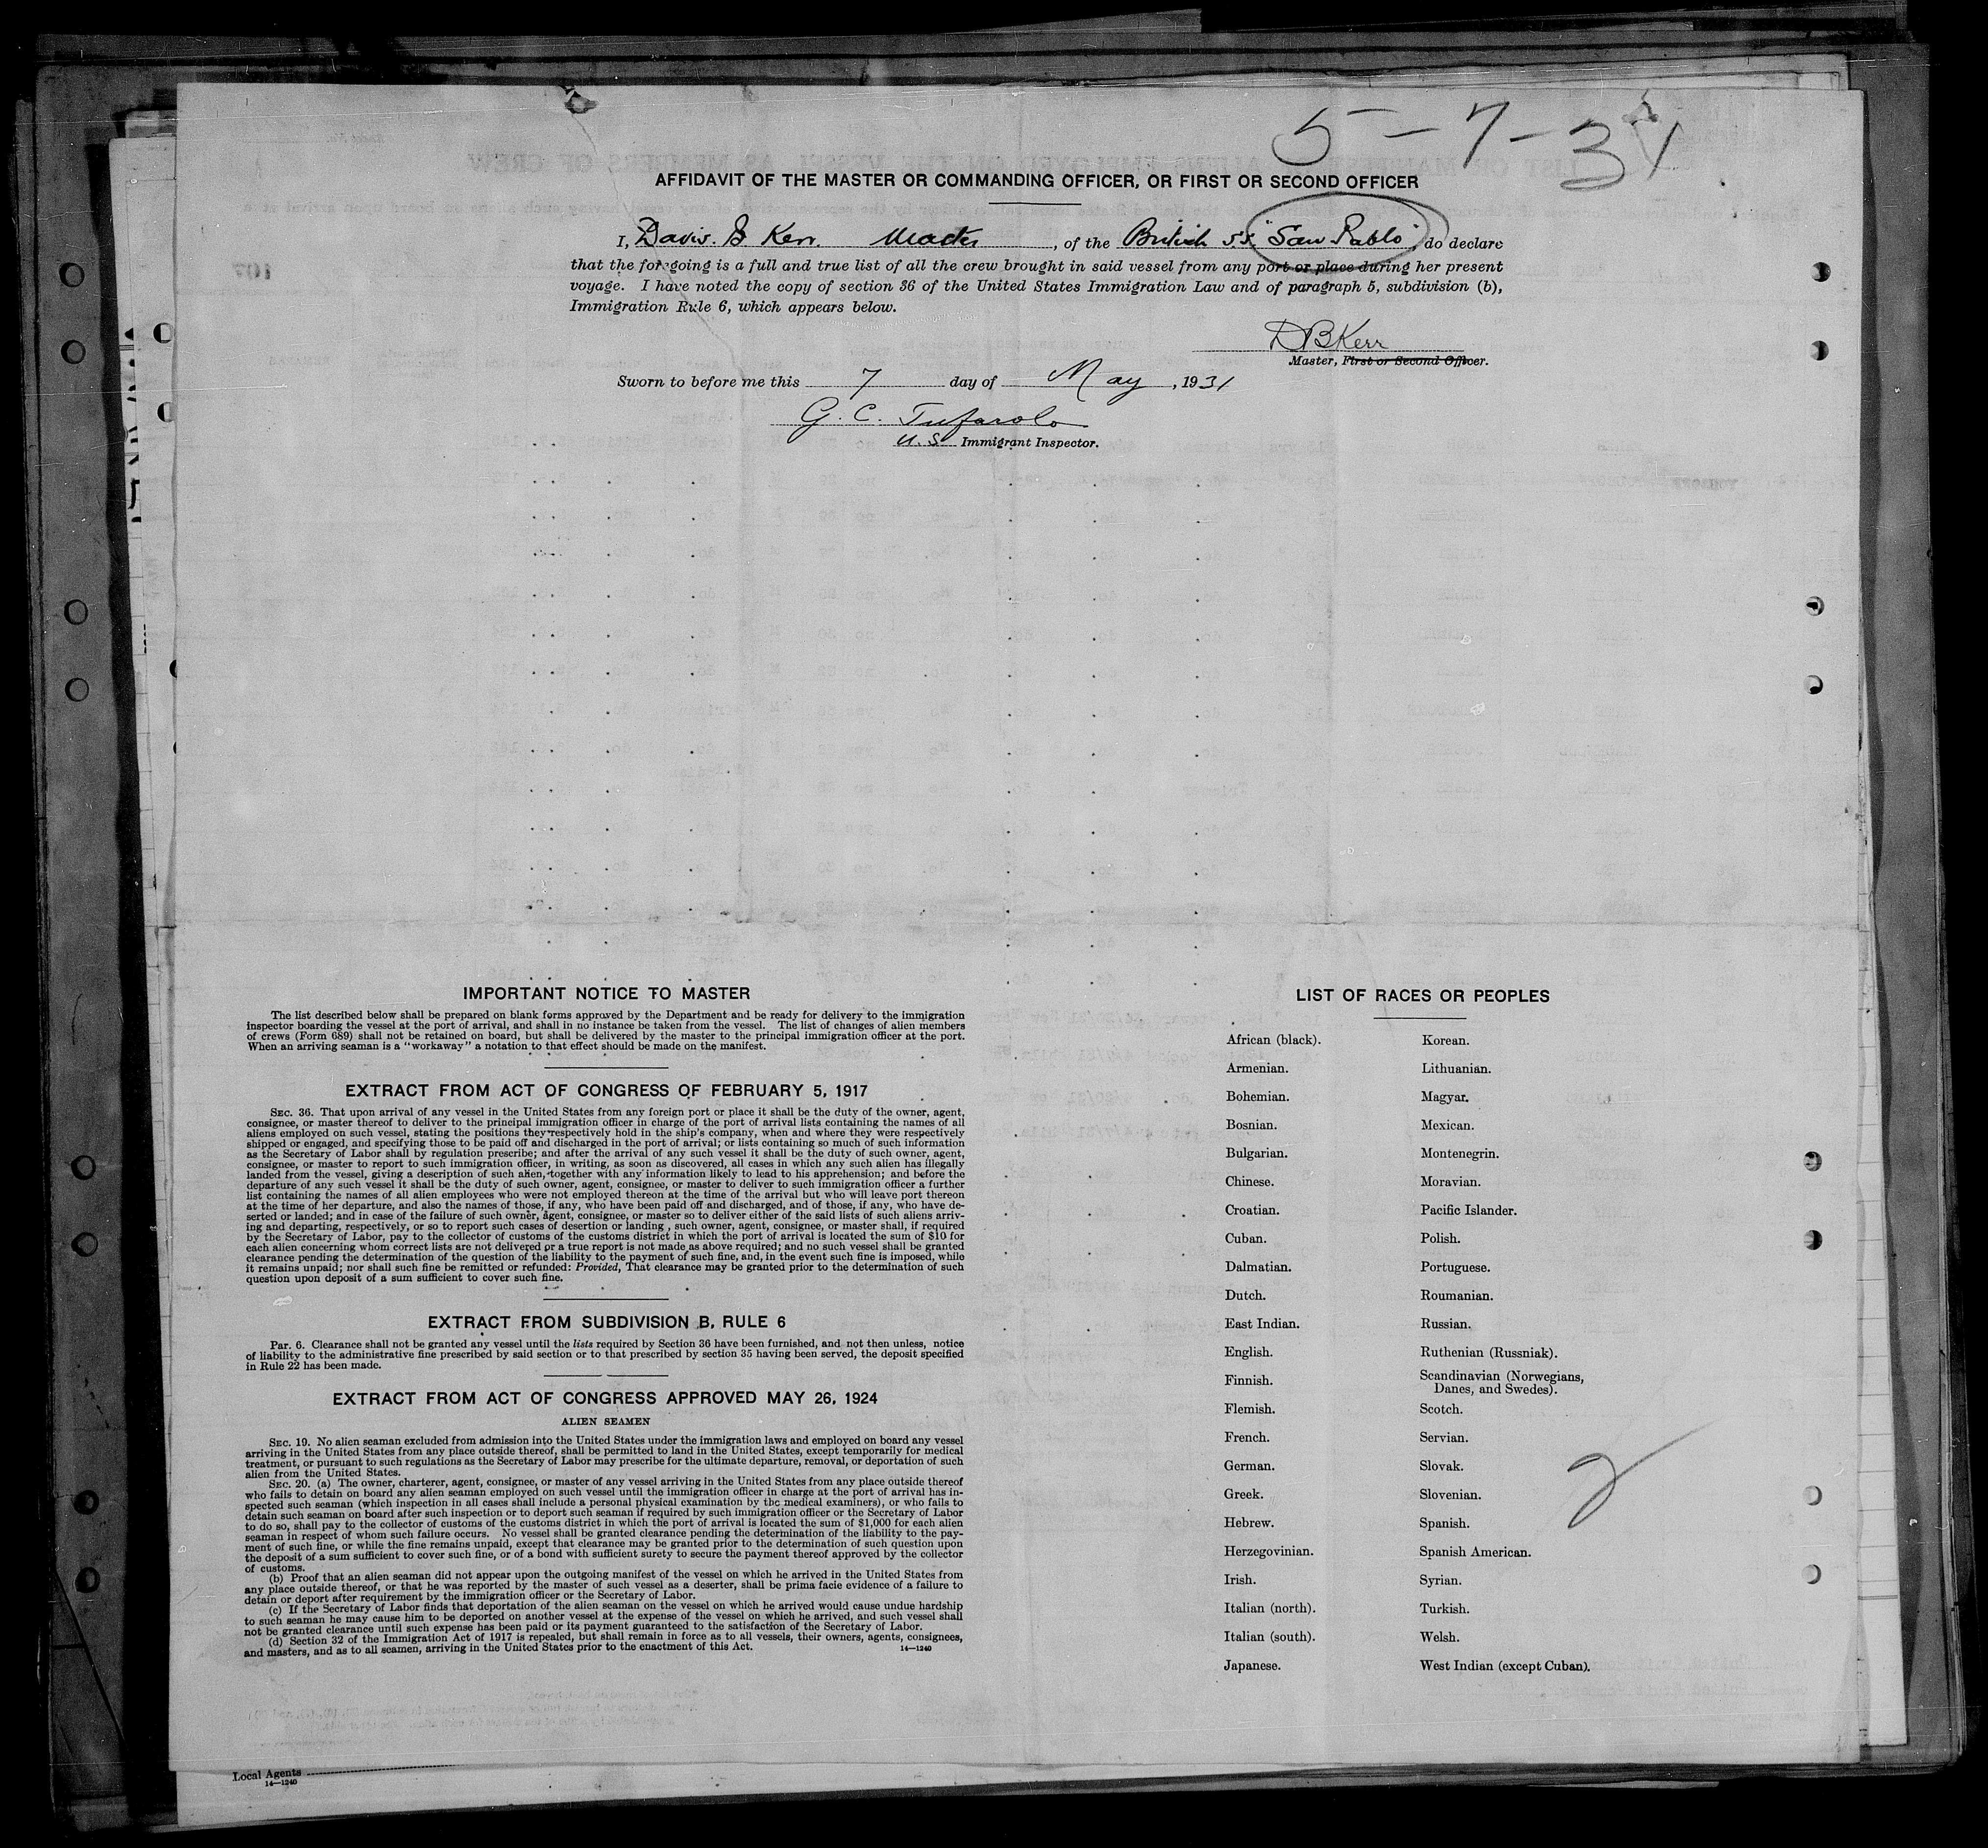 5-7-31
AFFIDAVIT OF THE MASTER OR COMMANDING OFFICER, OR FIRST OR SECOND OFFICER
I, Davis. B Kerr. Master, of the British S.S. "San Pablo", do declare
that the foregoing is a full and true list of all the crew brought in said vessel from any port or place during her present
voyage. I have noted the copy of section 36 of the United States Immigration Law and of paragraph 5, subdivision (b),
Immigration Rule 6, which appears below.
DBKerr
Master, First or Second Officer.
Sworn to before me this 7 day of May, 1931
G. C. Tufarolo
U.S. Immigrant Inspector.
IMPORTANT NOTICE TO MASTER
The list described below shall be prepared on blank forms approved by the Department and be ready for delivery to the immigration
inspector boarding the vessel at the port of arrival, and shall in no instance be taken from the vessel. The list of changes of alien members
of crews (Form 689) shall not be retained on board, but shall be delivered by the master to the principal immigration officer at the port.
When an arriving seaman is a "workaway" a notation to that effect should be made on the manifest.
EXTRACT FROM ACT OF CONGRESS OF FEBRUARY 5, 1917
SEC. 36. That upon arrival of any vessel in the United States from any foreign port or place it shall be the duty of the owner, agent,
consignee, or master thereof to deliver to the principal immigration officer in charge of the port of arrival lists containing the names of all
aliens employed on such vessel, stating the positions they respectively hold in the ship's company, when and where they were respectively
shipped or engaged, and specifying those to be paid off and discharged in the port of arrival; or lists containing so much of such information
as the Secretary of Labor shall by regulation prescribe; and after the arrival of any such vessel it shall be the duty of such owner, agent,
consignee, or master to report to such immigration officer, in writing, as soon as discovered, all cases in which any such alien has illegally
landed from the vessel, giving a description of such alien, together with any information likely to lead to his apprehension; and before the
departure of any such vessel it shall be the duty of such owner, agent, consignee, or master to deliver to such immigration officer a further
list containing the names of all alien employees who were not employed thereon at the time of the arrival but who will leave port thereon
at the time of her departure, and also the names of those, if any, who have been paid off and discharged, and of those, if any, who have de-
serted or landed; and in case of the failure of such owner, agent, consignee, or master so to deliver either of the said lists of such aliens arriv-
ing and departing, respectively, or so to report such cases of desertion or landing , such owner, agent, consignee, or master shall, if required
by the Secretary of Labor, pay to the collector of customs of the customs district in which the port of arrival is located the sum of $10 for
each alien concerning whom correct lists are not delivered or a true report is not made as above required; and no such vessel shall be granted
clearance pending the determination of the question of the liability to the payment of such fine, and, in the event such fine is imposed, while
it remains unpaid; nor shall such fine be remitted or refunded: Provided, That clearance may be granted prior to the determination of such
question upon deposit of a sum sufficient to cover such fine.
EXTRACT FROM SUBDIVISION B, RULE 6
Par. 6. Clearance shall not be granted any vessel until the lists required by Section 36 have been furnished, and not then unless, notice
of liability to the administrative fine prescribed by said section or to that prescribed by section 35 having been served, the deposit specified
in Rule 22 has been made.
EXTRACT FROM ACT OF CONGRESS APPROVED MAY 26, 1924
ALIEN SEAMEN
SEC. 19. No alien seaman excluded from admission into the United States under the immigration laws and employed on board any vessel
arriving in the United States from any place outside thereof, shall be permitted to land in the United States, except temporarily for medical
treatment, or pursuant to such regulations as the Secretary of Labor may prescribe for the ultimate departure, removal, or deportation of such
alien from the United States.
SEC. 20. (a) The owner, charterer, agent, consignee, or master of any vessel arriving in the United States from any place outside thereof
who fails to detain on board any alien seaman employed on such vessel until the immigration officer in charge at the port of arrival has in-
spected such seaman (which inspection in all cases shall include a personal physical examination by the medical examiners), or who fails to
detain such seaman on board after such inspection or to deport such seaman if required by such immigration officer or the Secretary of Labor
to do so, shall pay to the collector of customs of the customs district in which the port of arrival is located the sum of $1,000 for each alien
seaman in respect of whom such failure occurs. No vessel shall be granted clearance pending the determination of the liability to the pay-
ment of such fine, or while the fine remains unpaid, except that clearance may be granted prior to the determination of such question upon
the deposit of a sum sufficient to cover such fine, or of a bond with sufficient surety to secure the payment thereof approved by the collector
of customs.
(b) Proof that an alien seaman did not appear upon the outgoing manifest of the vessel on which he arrived in the United States from
any place outside thereof, or that he was reported by the master of such vessel as a deserter, shall be prima facie evidence of a failure to
detain or deport after requirement by the immigration officer or the Secretary of Labor.
(c) If the Secretary of Labor finds that deportation of the alien seaman on the vessel on which he arrived would cause undue hardship
to such seaman he may cause him to be deported on another vessel at the expense of the vessel on which he arrived, and such vessel shall
not be granted clearance until such expense has been paid or its payment guaranteed to the satisfaction of the Secretary of Labor.
(d) Section 32 of the Immigration Act of 1917 is repealed, but shall remain in force as to all vessels, their owners, agents, consignees,
and masters, and as to all seamen, arriving in the United States prior to the enactment of this Act.
14—1240
LIST OF RACES OR PEOPLES
African (black).
Armenian.
Bohemian.
Bosnian.
Bulgarian.
Chinese.
Croatian.
Cuban.
Dalmatian.
Dutch.
East Indian.
English.
Finnish.
Flemish.
French.
German.
Greek.
Hebrew.
Herzegovinian.
Irish.
Italian (north).
Italian (south).
Japanese.
Korean.
Lithuanian.
Magyar.
Mexican.
Montenegrin.
Moravian.
Pacific Islander.
Polish.
Portuguese.
Roumanian.
Russian.
Ruthenian (Russniak).
Scandinavian (Norwegians,
Danes, and Swedes).
Scotch.
Servian.
Slovak.
Slovenian.
Spanish.
Spanish American.
Syrian.
Turkish.
Welsh.
West Indian (except Cuban).
2
Local Agents
14—1240